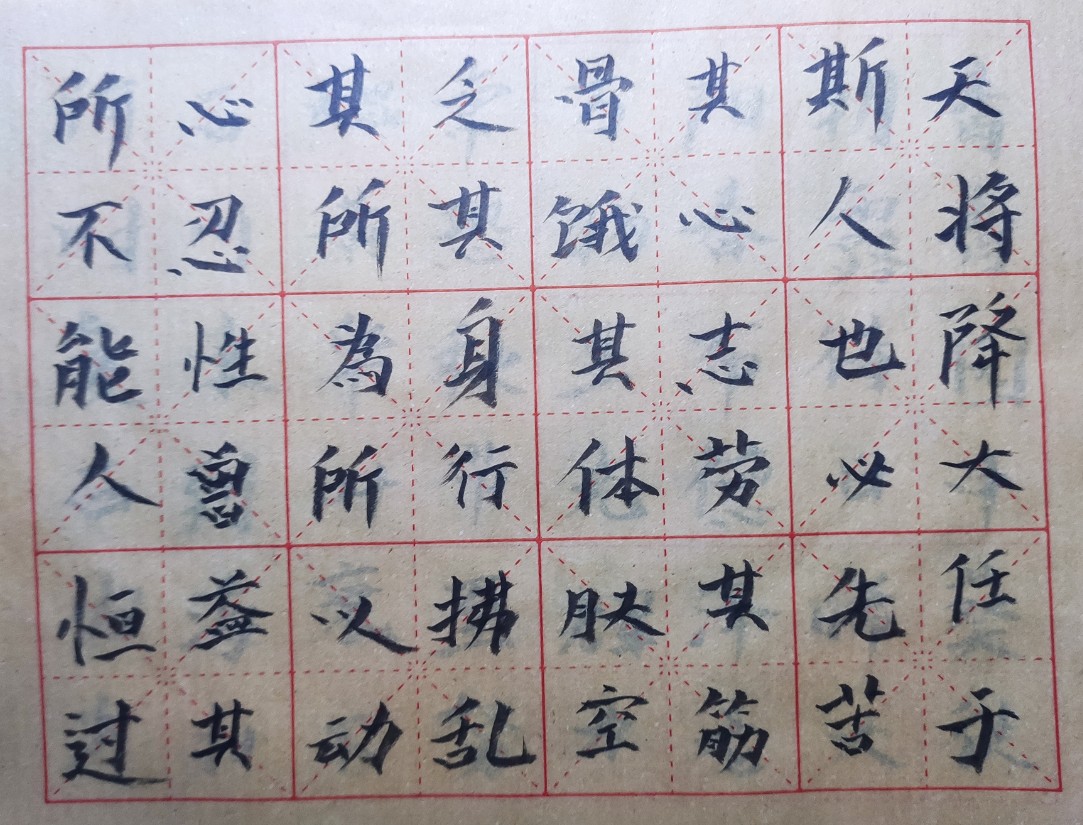 天将降大任于
斯人也必先苦
其心志劳其筋
骨饿其体肤空
乏其身行拂乱
其所為所以动
心忍性曾益其
所不能人恒过